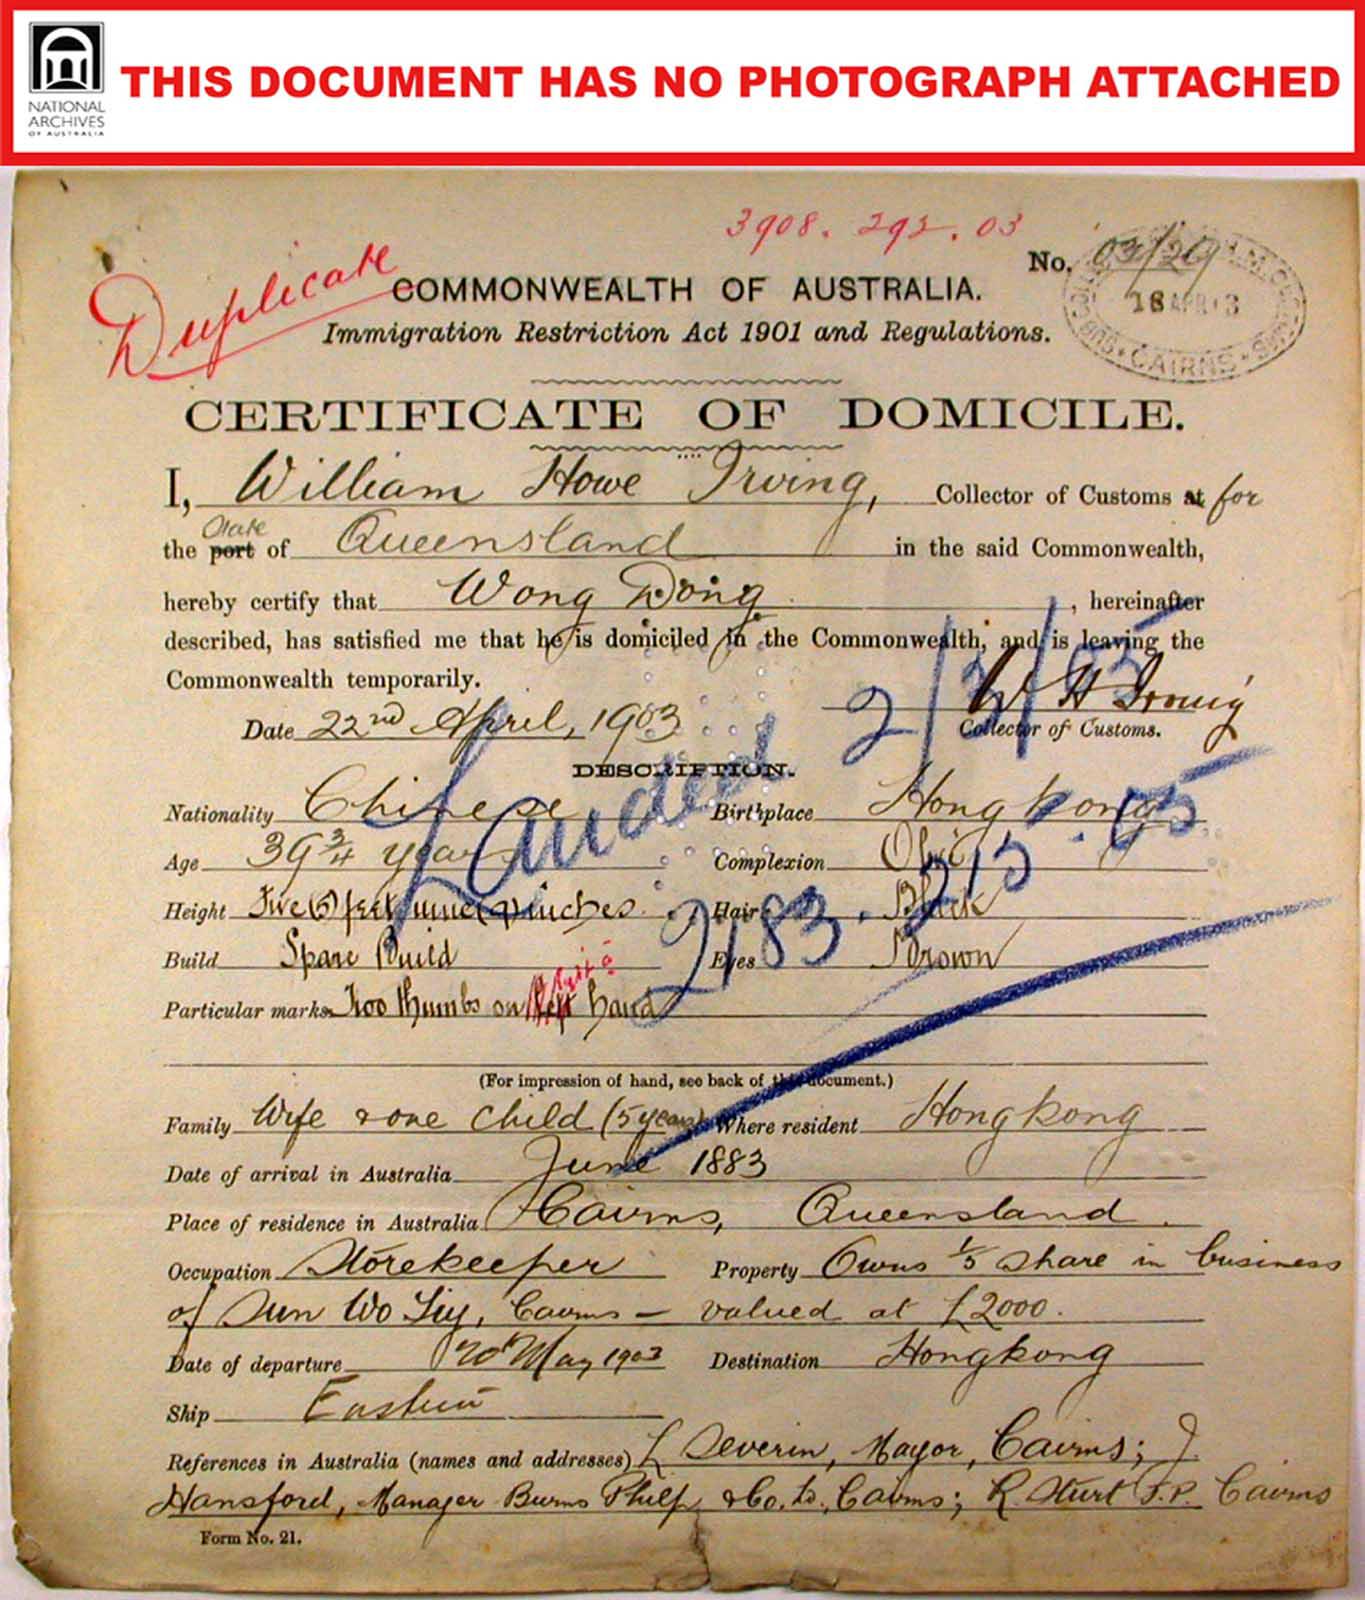 NATIONAL
ARCHIVES
OF AUSTRALIA
THIS DOCUMENT HAS NO PHOTOGRAPH ATTACHED
3908. 292. 03
Duplicate
No. 03/29
18 APR 03
CUSTOMS
CAIRNS
COMMONWEALTH OF AUSTRALIA.
Immigration Restriction Act 1901 and Regulations.
CERTIFICATE OF DOMICILE.
I, William Howe Irving, Collector of Customs at for
the port State of Queensland in the said Commonwealth,
hereby certify that Wong Dong, hereinafter
described, has satisfied me that he is domiciled in the Commonwealth, and is leaving the
Commonwealth temporarily.
Date 22nd April, 1903 W H Irving
Collector of Customs.
Landed
DESCRIPTION.
Nationality Chinese Birthplace Hong kong
Age 39 3/4 years Complexion Olive
Height Five (5) feet nine (9) inches. Hair Black
2183. 215. 05
Build Spare Build Eyes Brown
Particular marks Two thumbs on left right hand
(For impression of hand, see back of this document.)
Family Wife & one child (5 years) Where resident Hongkong
Date of arrival in Australia June 1883
Place of residence in Australia Cairns, Queensland.
Occupation Storekeeper Property Owns 1/5 share in business
of Sun Wo Tiy, Cairns – valued at £2000.
Date of departure 20th May 1903 Destination Hongkong
Ship Eastern
References in Australia (names and addresses) L Severin, Mayor, Cairns; J.
Hansford, Manager Burns Philp & Co. Ld., Cairns; R. Sturt J.P. Cairns
Form No. 21.